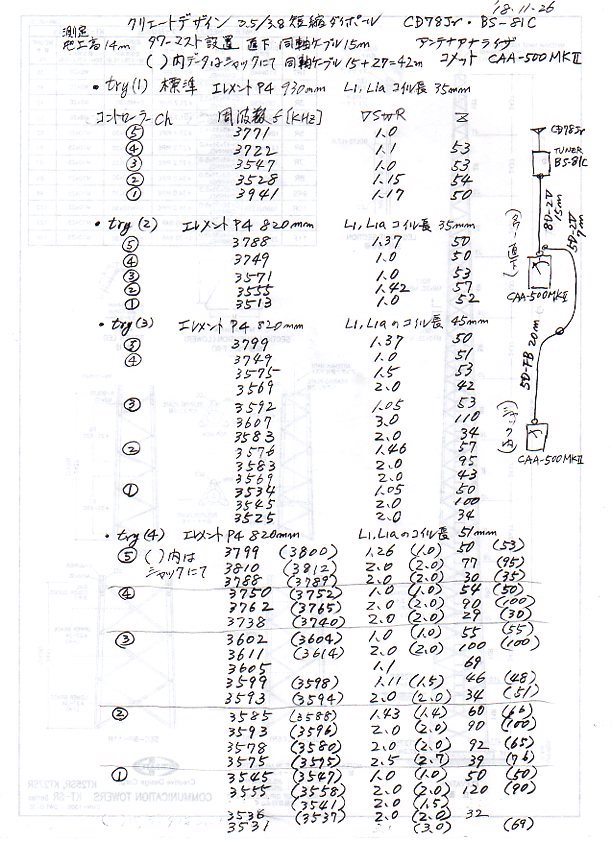 '18.11-26
クリエートデザイン 3.5/3.8 短縮ダイポール CD78Jr・BS-81C
測定
地上高14m タワーマスト設置 直下 同軸ケーブル15m アンテナアナライザ
( )内データはシャックにて 同軸ケーブル 15+27=42m コメット CAA-500MKⅡ
・try(1) 標準 エレメントP4 930mm L1,L1a コイル長 35mm
コントローラーCh 周波数f[KHz] VSWR Z
⑤ 3771 1.0
④ 3722 1.1 53
③ 3547 1.0 53
② 3528 1.15 54
① 3941 1.17 50
・try(2) エレメントP4 820mm L1,L1a コイル長 35mm
⑤ 3788 1.37 50
④ 3749 1.0 50
③ 3571 1.0 53
② 3555 1.42 57
① 3513 1.0 52
・try(3) エレメントP4 820mm L1,L1aのコイル長 45mm
⑤ 3799 1.37 50
④ 3749 1.0 51
3575 1.5 53
3569 2.0 42
③ 3592 1.05 53
3607 3.0 110
3583 2.0 34
② 3576 1.46 57
3583 2.0 95
3569 2.0 43
① 3534 1.05 50
3545 2.0 100
3525 2.0 34
・try(4) エレメントP4 820mm L1,L1aのコイル長 51mm
⑤ ( )内は 3799 (3800) 1.26 (1.0) 50 (53)
シャックにて 3810 (3812) 2.0 (2.0) 77 (95)
3788 (3789) 2.0 (2.0) 30 (35)
④ 3750 (3752) 1.0 (1.0) 54 (50)
3762 (3765) 2.0 (2.0) 90 (100)
3738 (3740) 2.0 (2.0) 29 (30)
③ 3602 (3604) 1.0 (1.0) 55 (55)
3611 (3614) 2.0 (2.0) 100 (100)
3605 1.1 69
3599 (3598) 1.11 (1.5) 46 (48)
3593 (3594) 2.0 (2.0) 34 (51)
② 3585 (3588) 1.43 (1.4) 60 (66)
3593 (3596) 2.0 (2.0) 90 (100)
3578 (3580) 2.0 (2.0) 92 (65)
3575 (3595) 2.5 (2.7) 39 (76)
① 3545 (3547) 1.0 (1.0) 50 (50)
3555 (3558) 2.0 (2.0) 120 (90)
(3541) 2.0 (1.5)
3536 (3537) 2.0 (2.0) 32
3531 (3.0) (69)
CD78Jr
TUNER
BS-81C
8D-2V
15m
5D-2V
7m
(タワー直下)
CAA-500MKⅡ
5D-FB 20m
(シャック内)
CAA-500MKⅡ